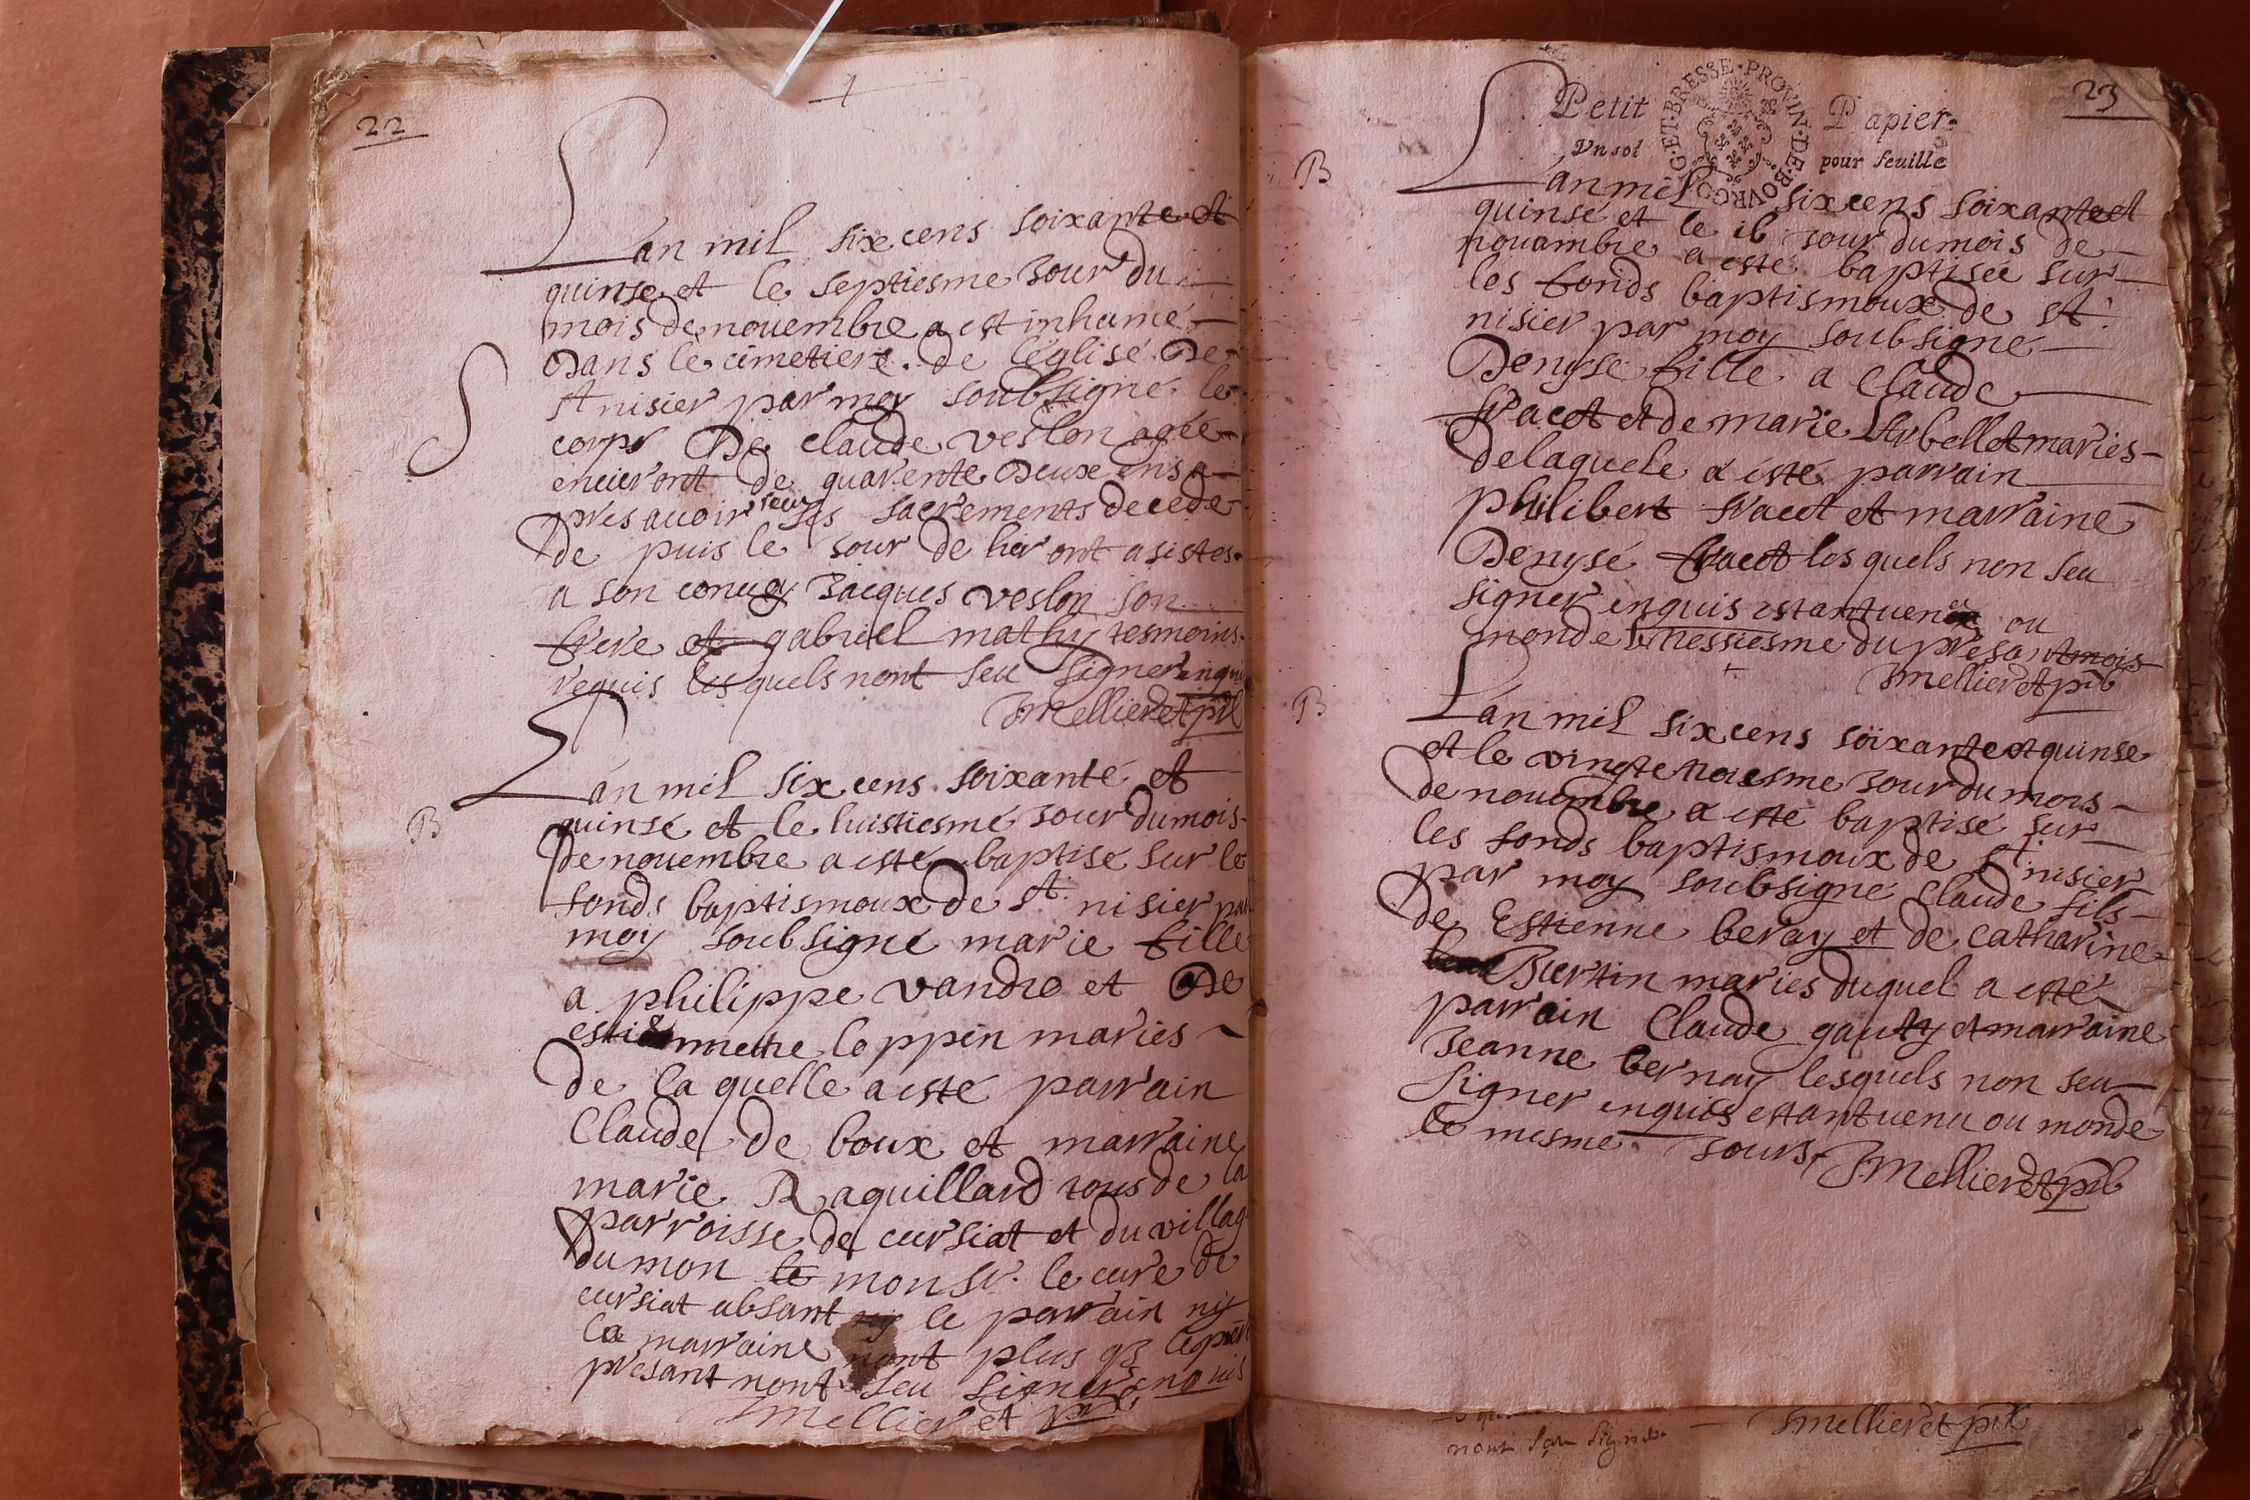 22
Lan mil six cens soixante et
quinse et le septiesme Jour du
mois de nouembre a est inhumé
Dans le cimetiere de léglise De
St nisier par moy soubsigné le
corps De claude veslon agée
enuiront de quarente Deux ens a
pres auoir receu ses sacrements decede
de puis le Jour de hier ont asistes
a son conuoy Jacques veslon son
frere et gabriel mathy tesmoins
requis lesquels nont seu signer inquis
JMellieret pbr
S
Lan mil six cens soixante et
quinse et le huistiesme Jour du mois
De nouembre a esté baptisé sur le
fonds baptismoux de St nisier par
moy soubsigné marie fille
a philippe vandre et De
estiennette loppin maries
de la quelle a esté parrain
Claude de boux et marraine
marie Raquillard tous de la
parroisse de cursiat et du villag
du mon le monsr. le cure de
cursiat absant ny le parrain ny
la marraine nont plus q3 le père
présant nont seu signer enquis
JMellieret pbr
B
23
Petit Papier
Vn sol pour feuille
G·ET·BRESSE·PROVIN·DE·BOVRGO
B
Lan mil six cens soixante et
quinse et le 16 Jour du mois de
nouambre a esté baptisée sur
les fonds baptismoux de St
nisier par moy soubsigné
Denyse fille a Claude
fracot et de marie Arbellot maries
de laquele a esté parrain
philibert fracot et marraine
Denysé fracot les quels non seu
signer enquis estant uenu ou
monde le tressiesme du présant mois
JMellieret pbr
B
Lan mil six cens soixante et quinse
et le vingte noiesme Jour du mois
de nouombre a esté baptisé sur
les fonds baptismoux de St nisier
par moy soubsigné Claude fils
de Estienne beray et de Catharine
Burtin maries duquel a esté
parrain Claude gauty et marraine
Jeanne bernay lesquels non seu
signer enquis estant uenu ou monde
le mesme Jours JMellieret pbr
nont sçeu signer JMellieret pbr